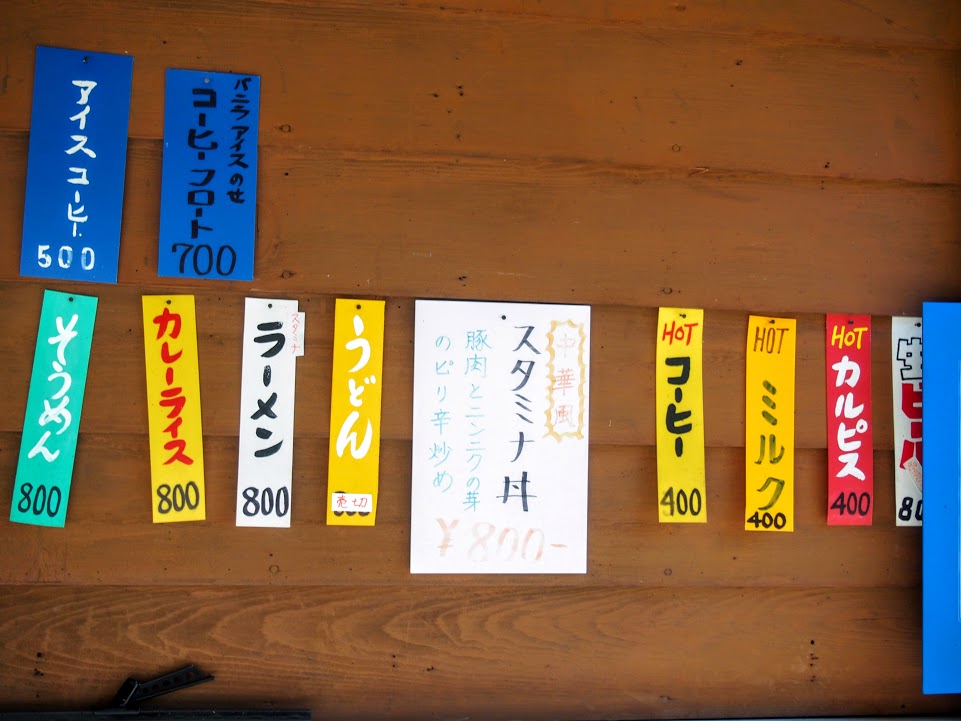 アイスコーヒー
500
バニラアイスのせ
コーヒーフロート
700
そうめん
800
カレーライス
800
スタミナ
ラーメン
800
うどん
売切
中華風
スタミナ丼
豚肉とニンニクの芽
のピリ辛炒め
¥800-
HOT
コーヒー
400
HOT
ミルク
400
HOT
カルピス
400
生ビール
80